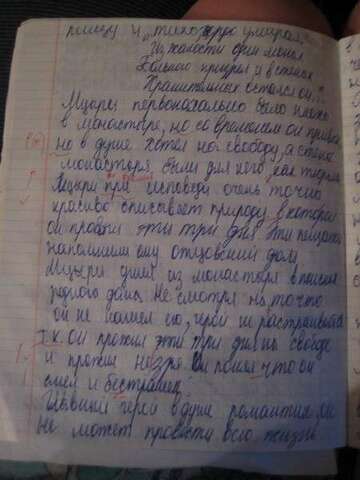 пищу и „тихо, гордо умирал."
Из жалости один монах
Больного призрел и в стенах
Хранительных остался он...
Мцыри первоначально было плохо
в монастыре, но со временем он привык
но в душе хотел на свободу, а стены
монастыря были для него, как тюрьма
Мцыри при исповеди очень точно
красиво описывает природу в которой
он провёл эти три дня. Эти пещеры
напомнили ему отцовский дом.
Мцыри ушел из монастыря в поисках
родного дома. Не смотря на то что
он не нашел его, герой не расстраивается
т.к. он прожил эти три дня на свободе
и прожил не зря. Он понял что он
смел и бесстрашен.
Главный герой в душе романтик он
не может провести всю жизнь